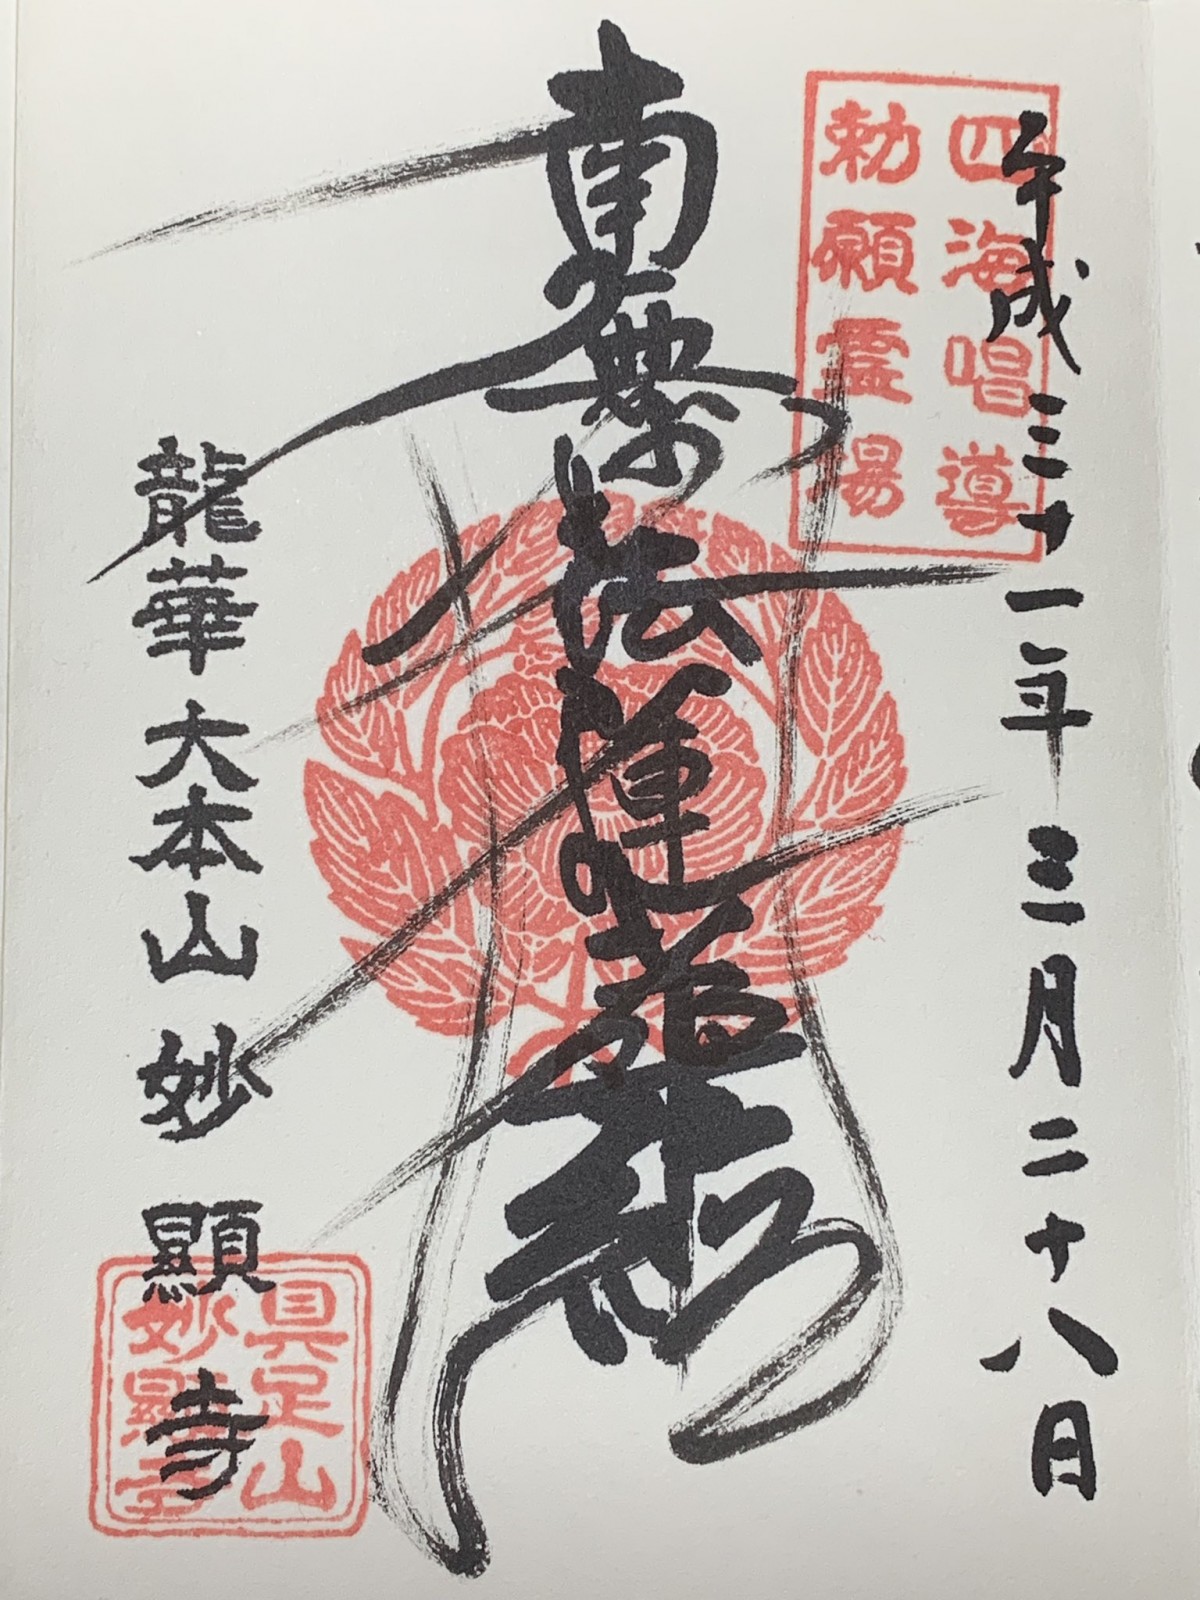 平成三十一年三月二十八日
四海唱導
勅願霊場
南無妙法蓮華経
龍華大本山妙顯寺
具足山
妙顯寺